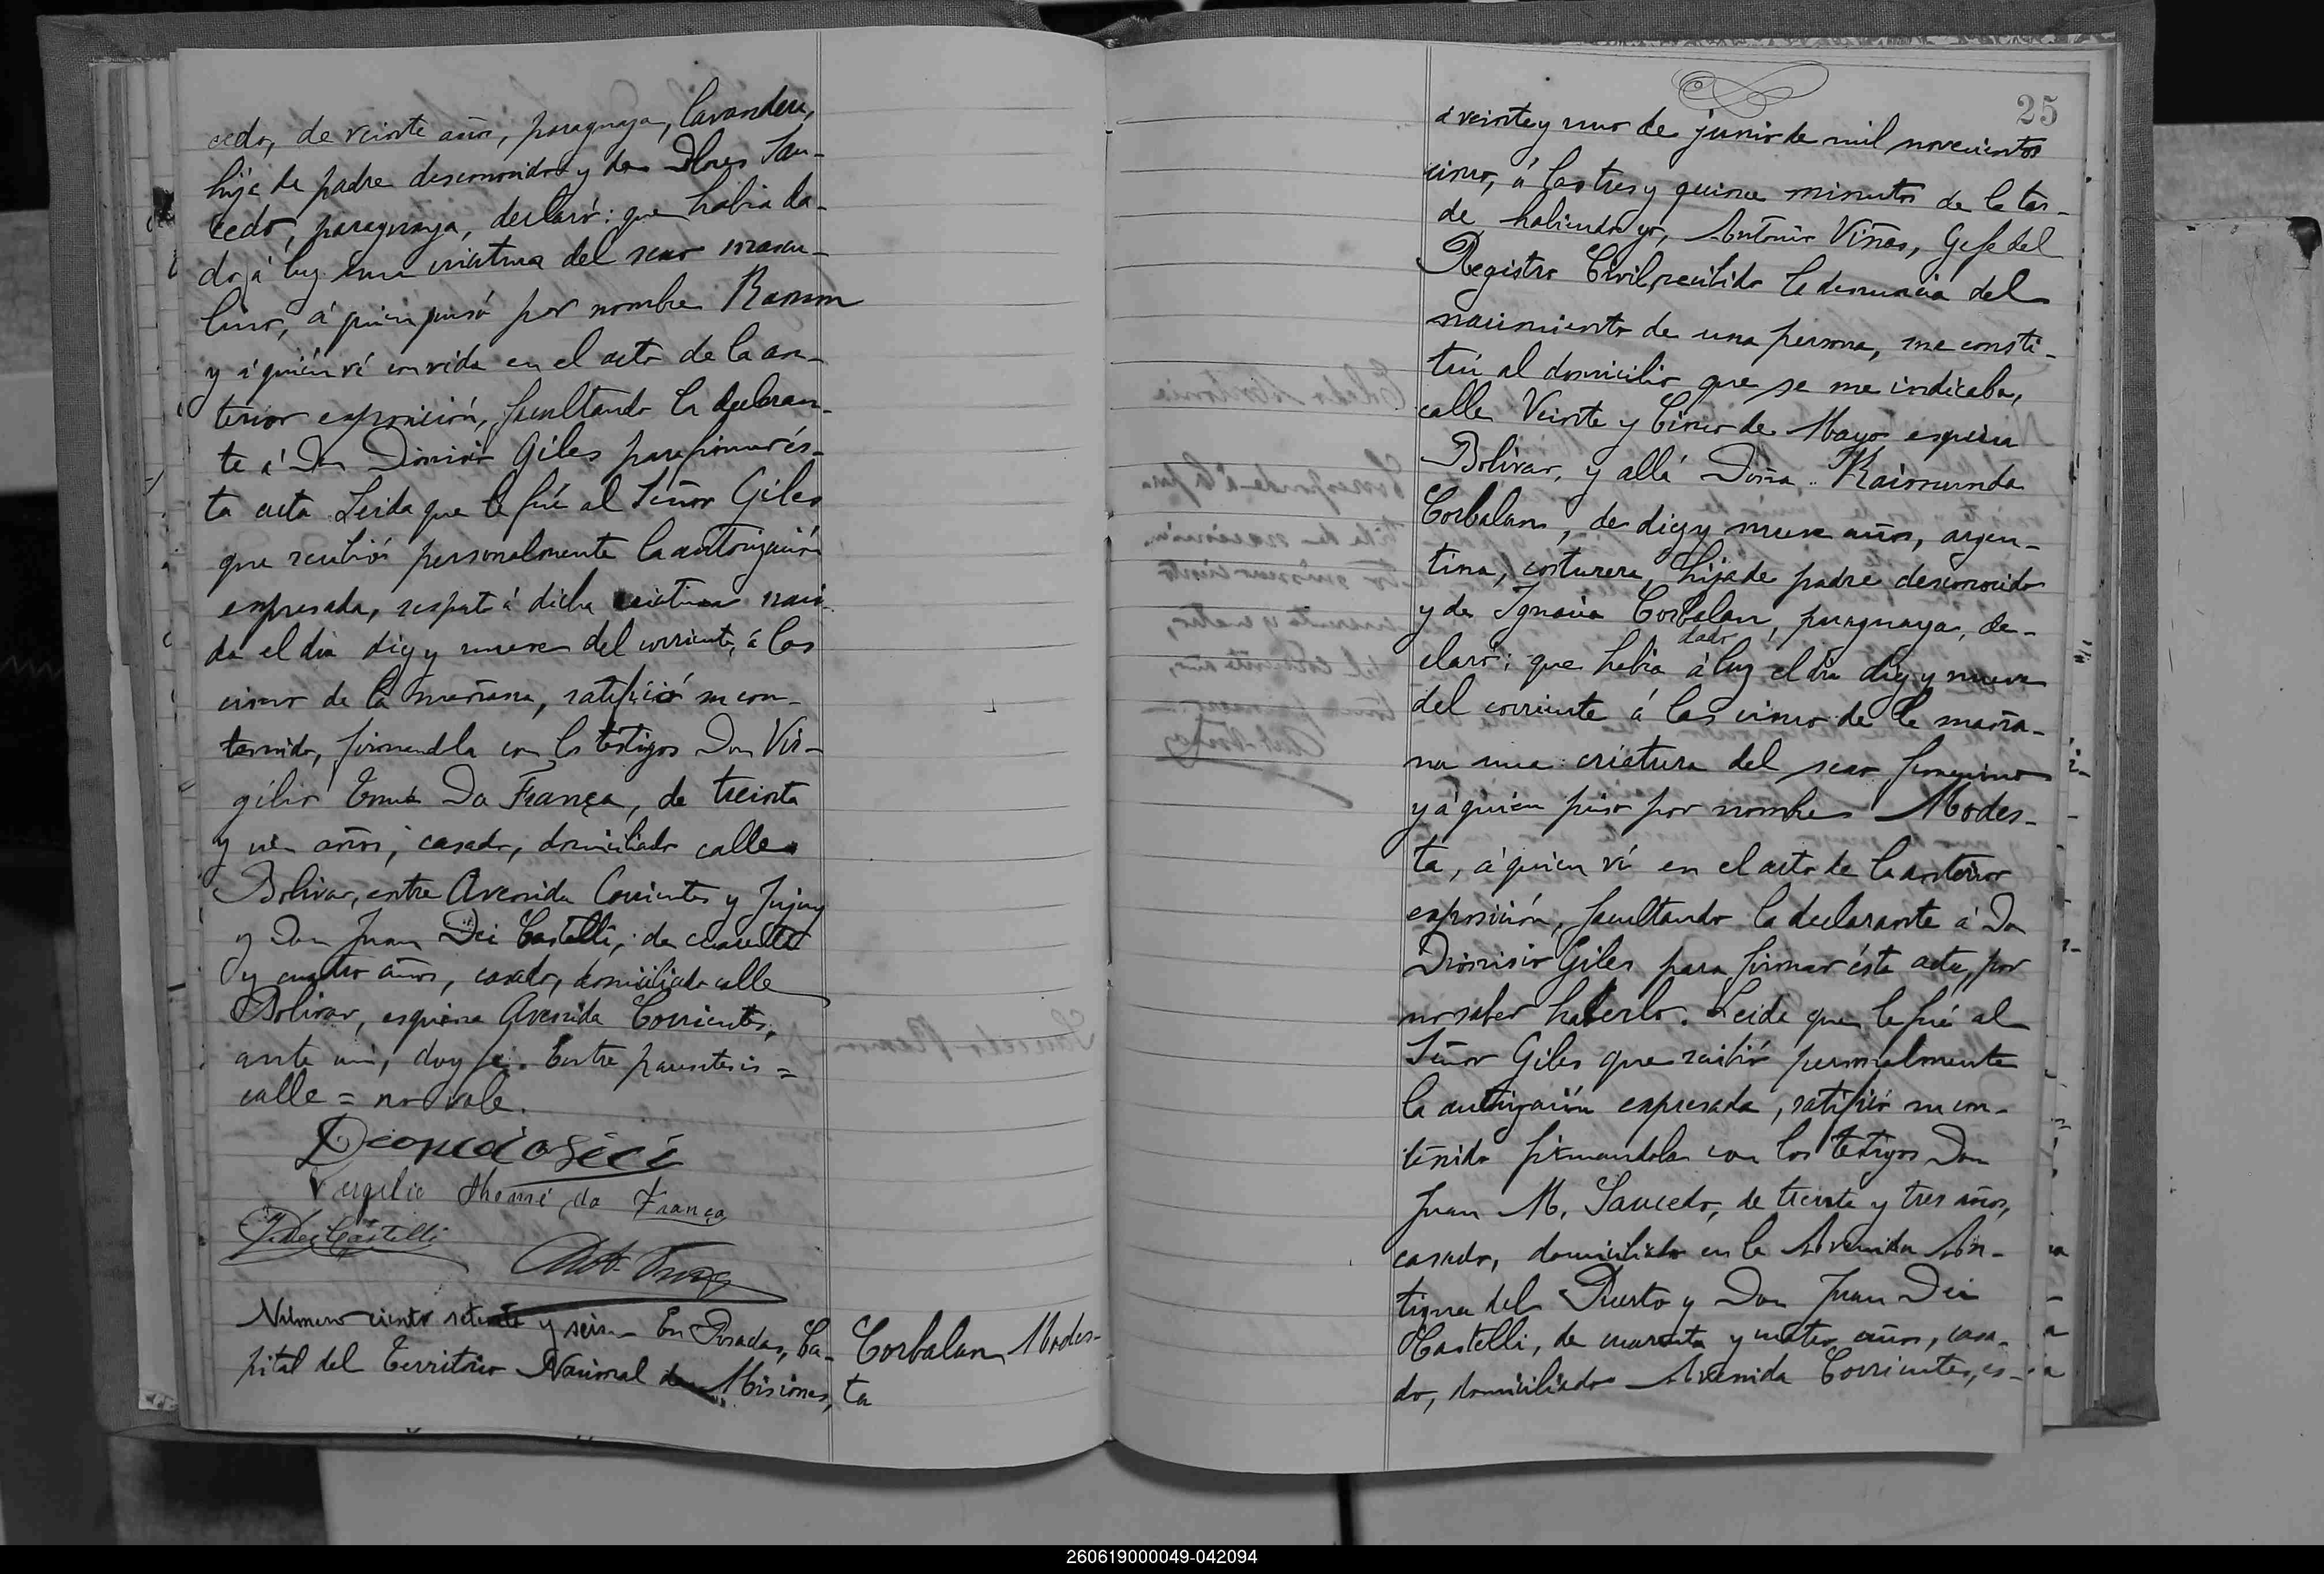 cedo, de veinte años, paraguaya, lavandera,
hija de padre desconocido y de Dolores Sau-
cedo, paraguaya, declaró: que habia da-
do á luz una criatura del sexo mascu-
lino, á quien pusó por nombre Ramon
y á quién ví con vida en el acto de la an-
terior exposición, facultando la declaran-
te á Don Dionisio Giles para firmar és-
ta acta. Leida que le fué al Señor Giles
que recibió personalmente la autorización
expresada, respecto á dicha criatura naci-
da el dia diez y nueve del corriente, á las
cinco de la mañana, ratificó su con-
tenido, firmandla con los testigos Don Vir-
gilio Tomé Da França, de treinta
y un años, casado, domiciliado calle
Bolivar, entre Avenida Corrientes y Jujuy
y Don Juan Dei Castelli, de cuarenta
y cuatro años, casado, domiciliado calle
Bolivar, esquina Avenida Corrientes,
ante mí, doy fé. Entre parentesis =
calle = no vale.
Virgilio Thomé da França
J. Dei Castelli
Numero ciento setenta y seis.- En Posadas, Ca-
pital del Territorio Nacional de Misiones,
Corbalan Modes-
ta
25
á veinte y uno de junio de mil novecientos
cinco, á las tres y quince minutos de la tar-
de habiendo yo, Antonio Viñas, Gefe del
Registro Civil, recibido la denuncia del
nacimiento de una persona, me consti-
tuí al domicilio que se me indicaba,
calle Veinte y Cinco de Mayo esquina
Bolivar, y allá Doña Raimunda
Corbalan, de diez y nueve años, argen-
tina, costurera, hija de padre desconocido
y de Ignacia Corbalan, paraguaya, de-
claró: que habia dado á luz el dia diez y nueve
del corriente á las cinco de la maña-
na una criatura del sexo femenino
y á quien puso por nombre Modes-
ta, á quien ví en el acto de la anterior
exposición, facultando la declarante á Dn
Dionisio Giles para firmar ésta acta, por
no saber haberlo. Leida que le fué al
Señor Giles que recibió personalmente
la autorización expresada, ratificó su con-
tenido firmandola con los testigos Don
Juan M. Saucedo, de treinta y tres años,
casado, domiciliado en la Avenida An-
tigua del Puerto y Don Juan Dei
Castelli, de cuarenta y cuatro años, casa-
do, domiciliado Avenida Corrientes, es-
260619000049-042094